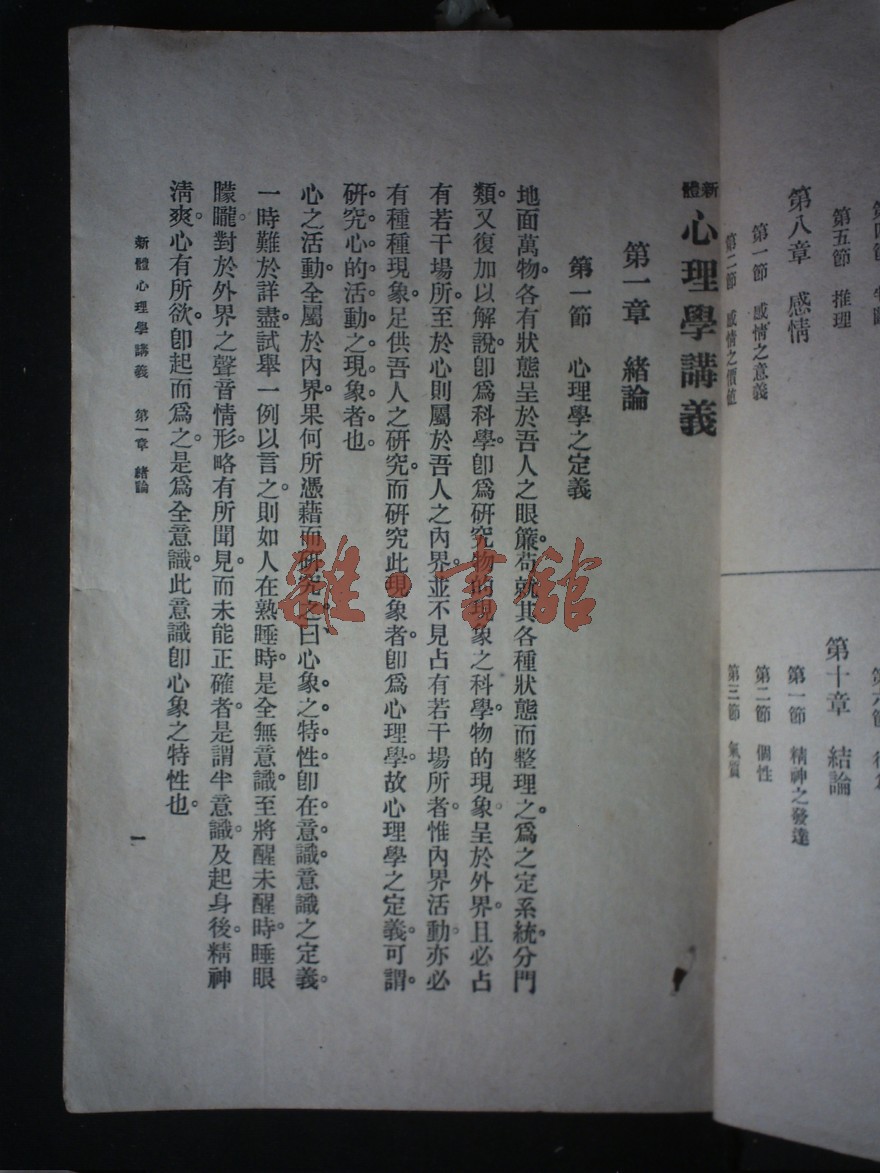 第五節　推理
第八章　感情
第一節　感情之意義
第二節　感情之價値
第十章　結論
第一節　精神之發達
第二節　個性
第三節　氣質
新體心理學講義
第一章　緒論
第一節　心理學之定義
地面萬物。各有狀態呈於吾人之眼簾。苟就其各種狀態而整理之。爲之定系統。分門
類。又復加以解說。卽爲科學。卽爲研究物的現象之科學。物的現象呈於外界。且必占
有若干場所。至於心則屬於吾人之內界。並不見占有若干場所者。惟內界活動。亦必
有種種現象。足供吾人之研究。而研究此現象者。卽爲心理學。故心理學之定義。可謂。
研究心的活動之現象者也。
心之活動。全屬於內界。果何所憑藉而研究之。曰心象之特性。卽在意識。意識之定義。
一時難於詳盡。試舉一例以言之。則如人在熟睡時。是全無意識。至將醒未醒時。睡眼
朦朧。對於外界之聲音情形。略有所聞見。而未能正確者。是謂半意識。及起身後。精神
淸爽。心有所欲。卽起而爲之。是爲全意識。此意識卽心象之特性也。
新體心理學講義　第一章　緒論
一
雜·書館